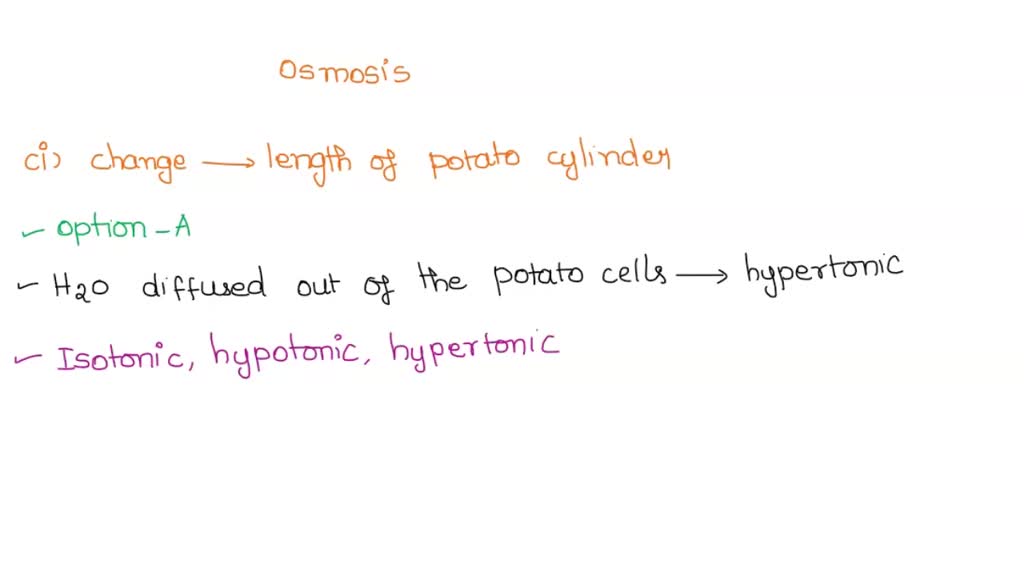 Osmosis
ci) change → length of potato cylinder
✓ option - A
✓ H2O diffused out of the potato cells → hypertonic
✓ Isotonic, hypotonic, hypertonic